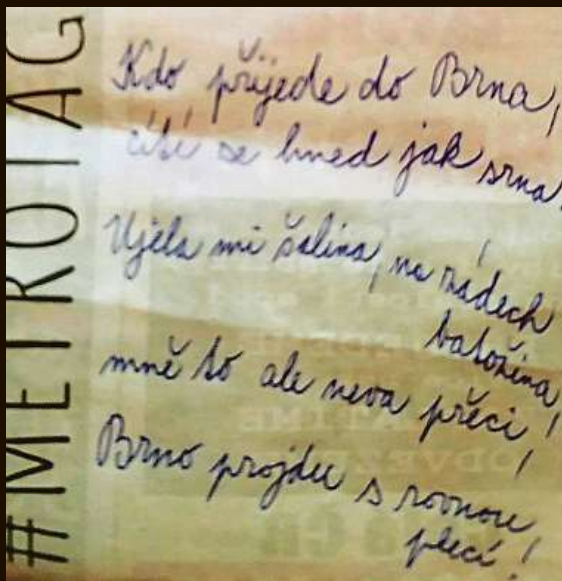 #METROTAG
Kdo přijede do Brna,
cítí se hned jak srna!
Ujela mi šalina, na zádech
batožina,
mně to ale neva přéci!
Brno projdu s rovnou
plecí!